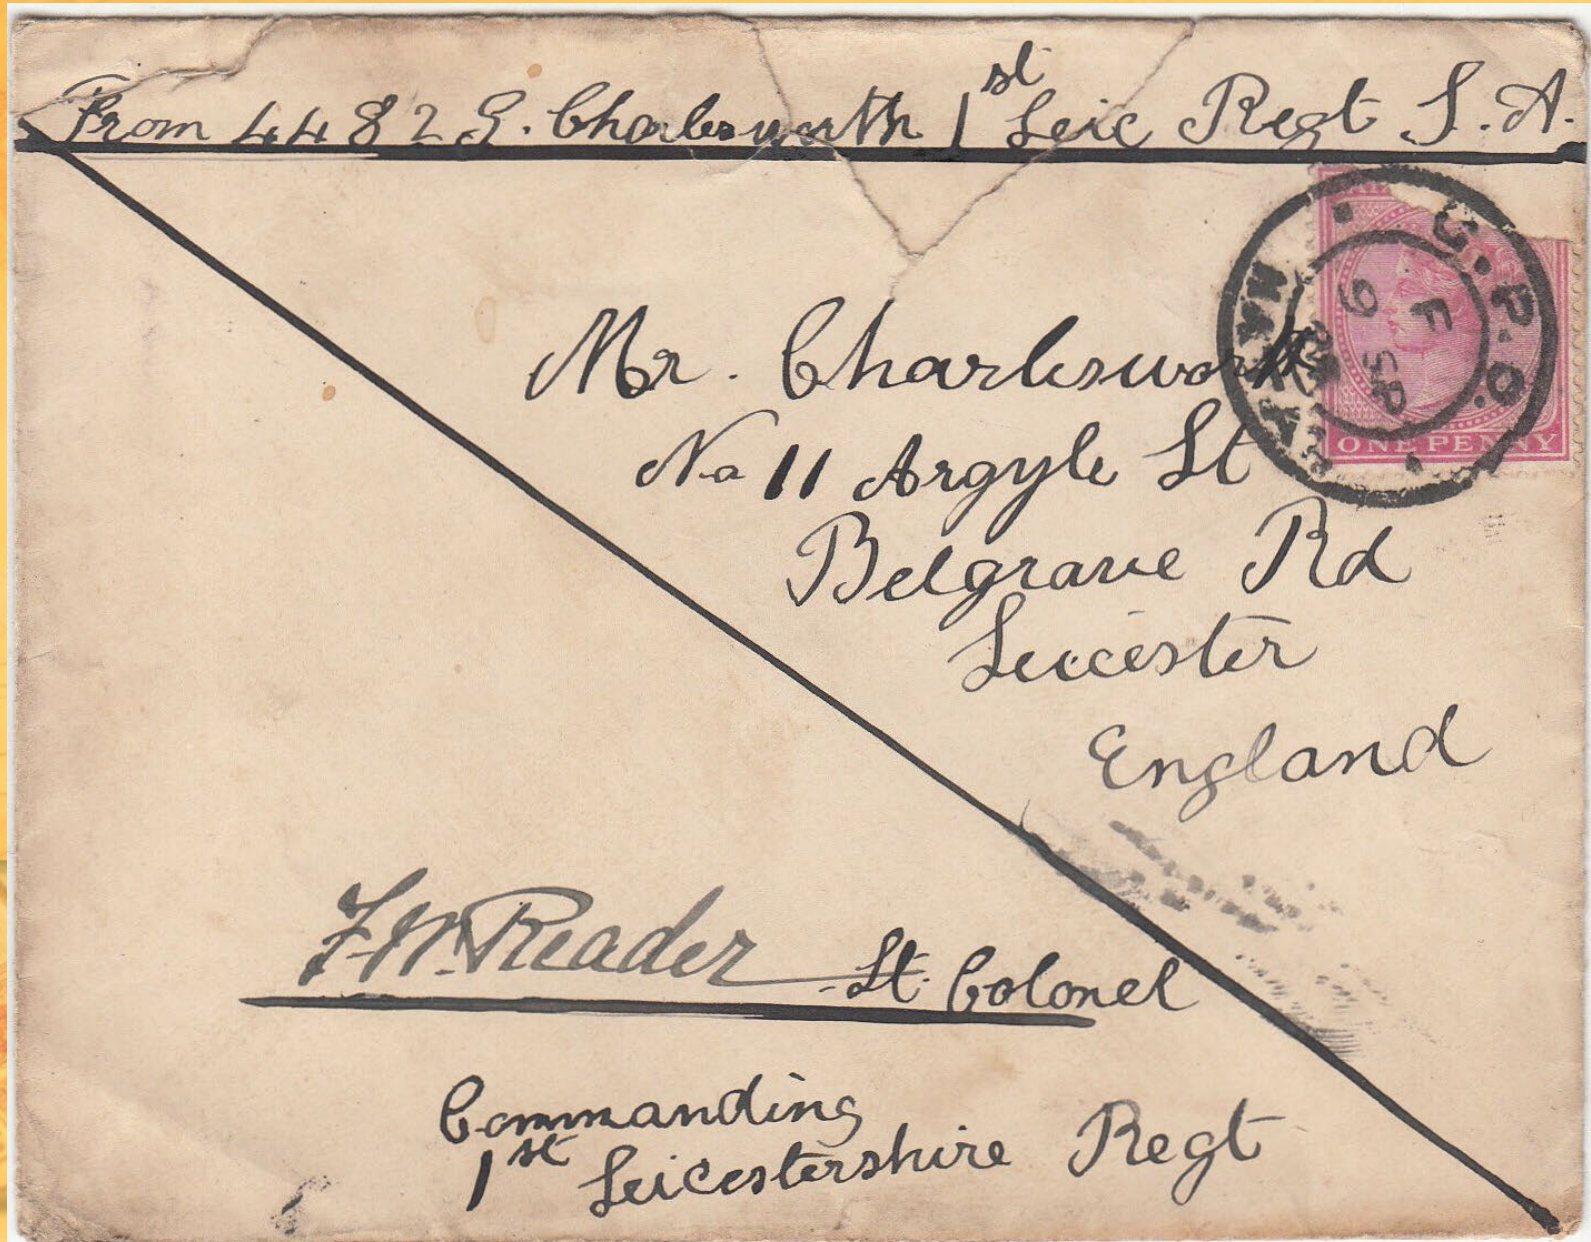 From 4482 G. Charlesworth 1st Leic Regt S.A.
G.P.O.
F
9
ONE PENNY
Mr. Charlesworth
No 11 Argyle St
Belgrave Rd
Leicester
England
F.W. Reader Lt. Colonel
Commanding
1st Leicestershire Regt